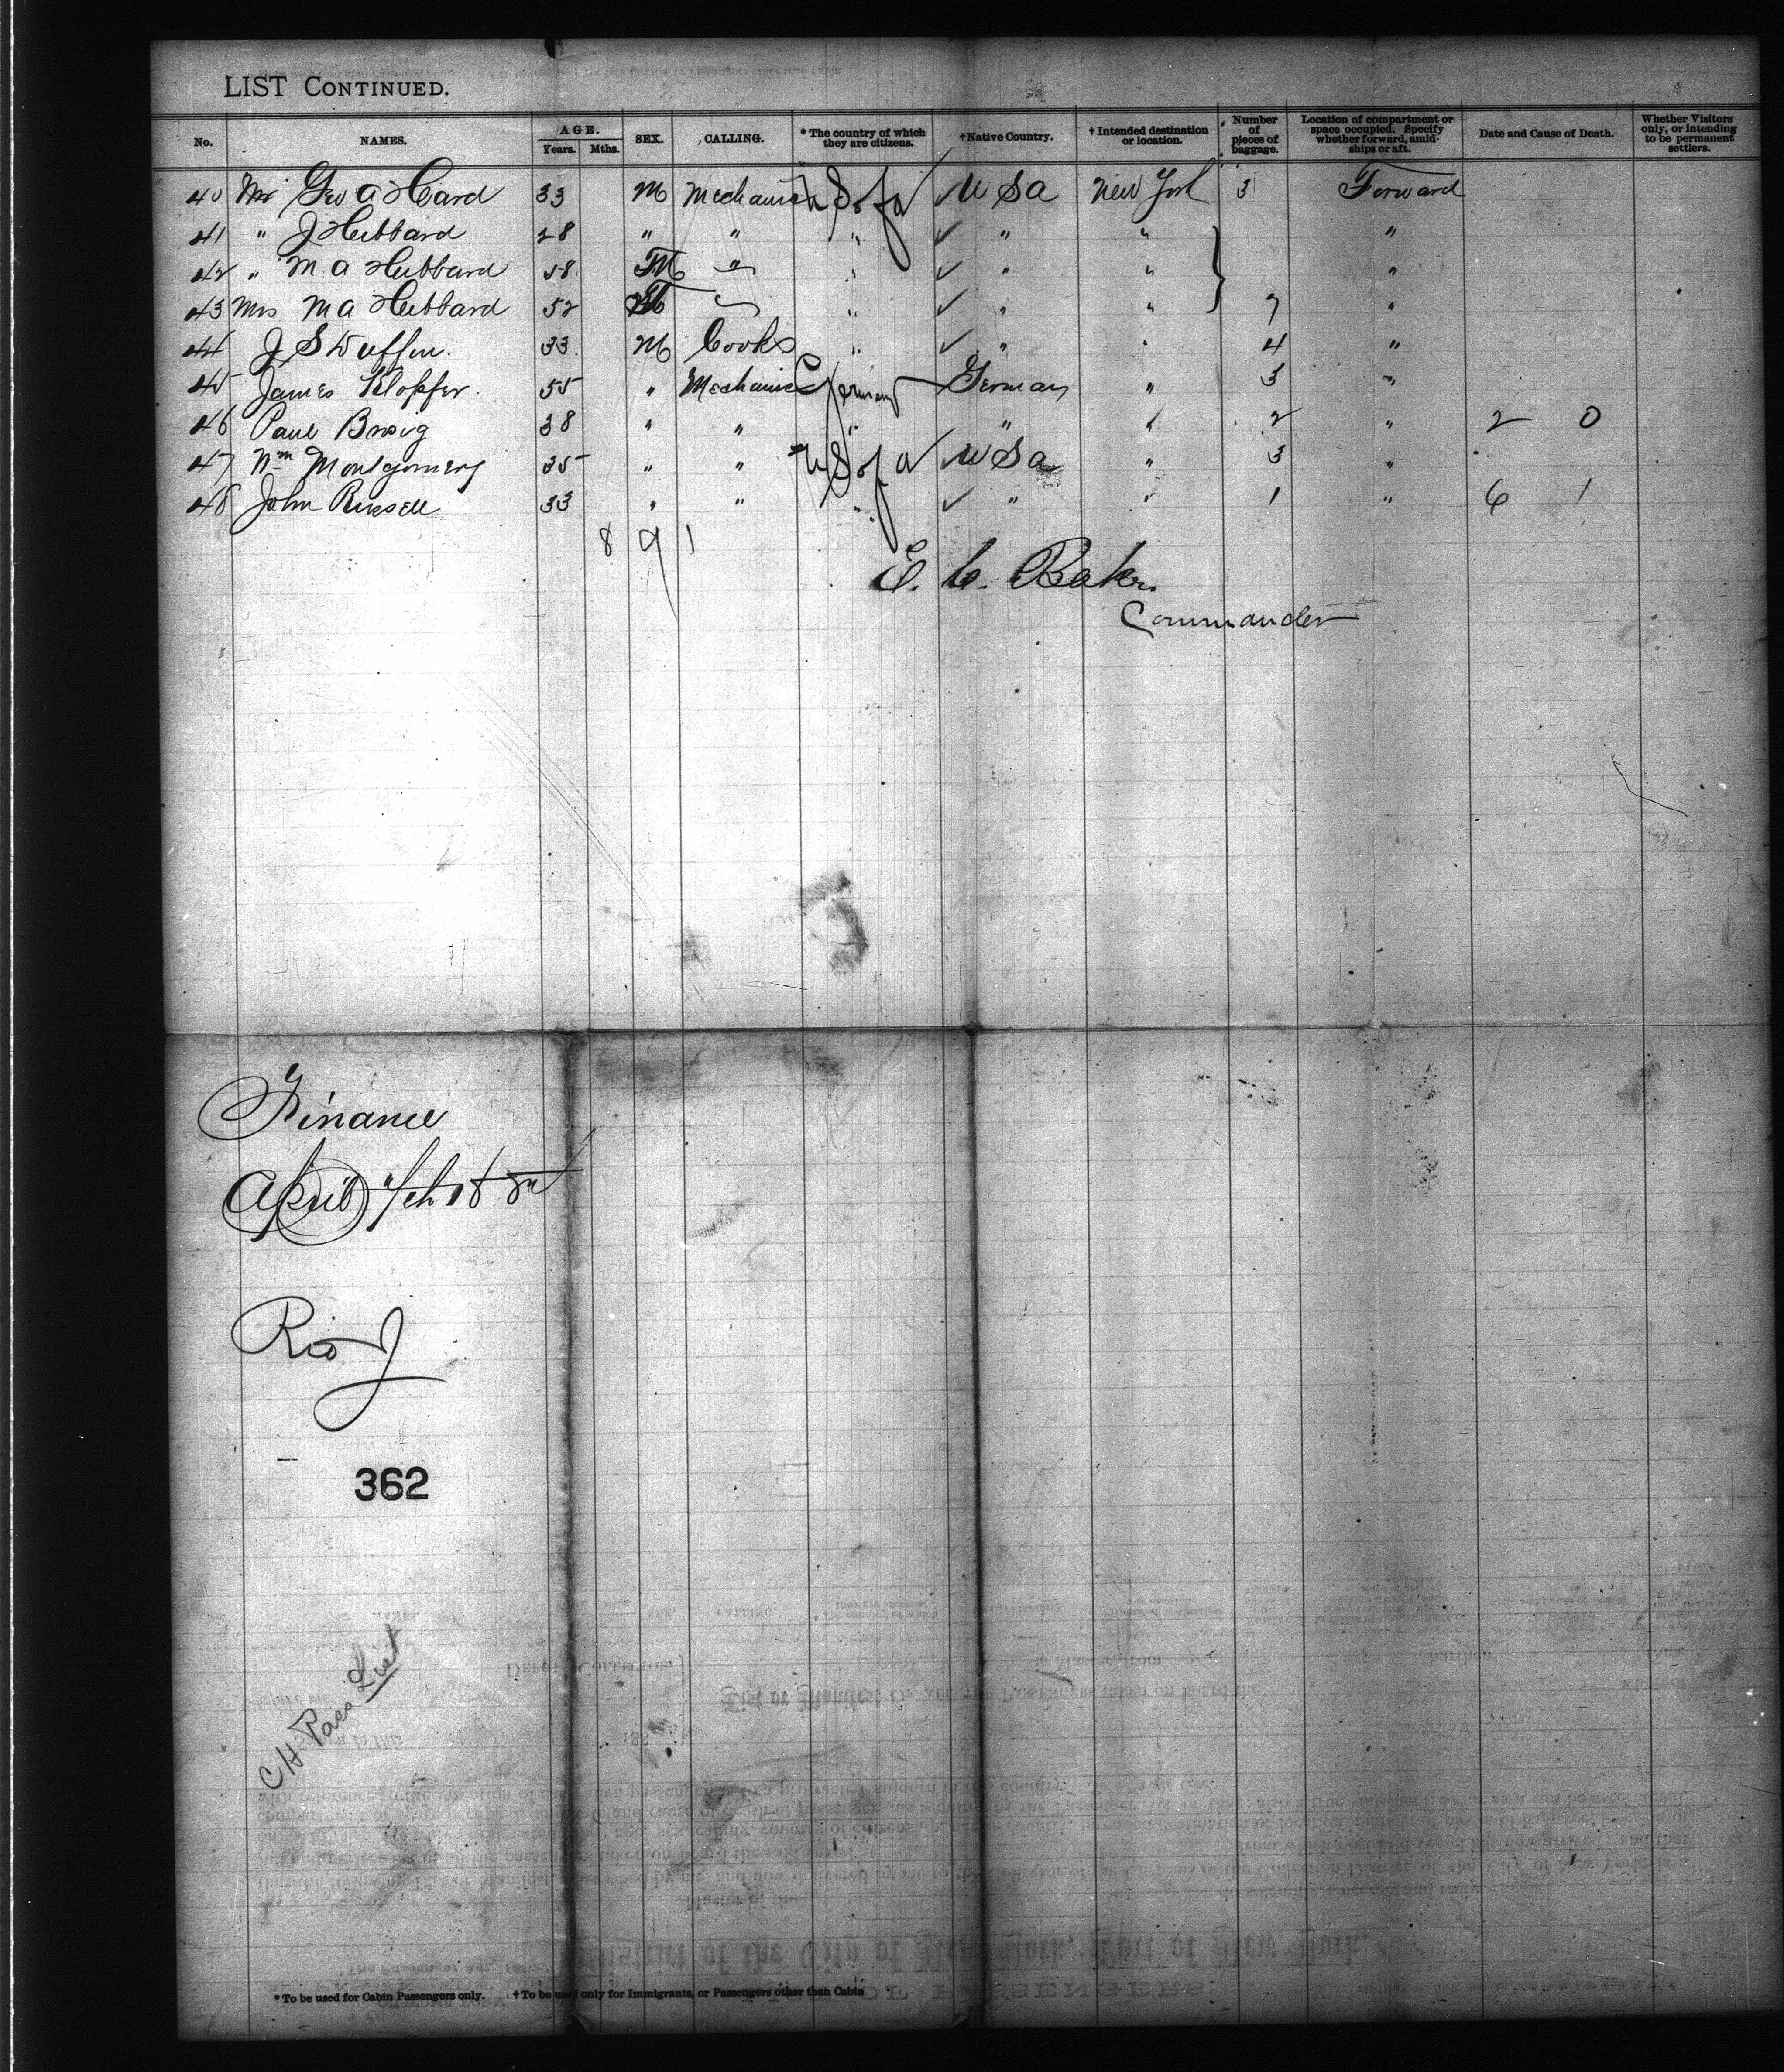 LIST CONTINUED.
No. NAMES. AGE. Years. Mths. SEX. CALLING. * The country of which they are citizens. † Native Country. † Intended destination or location. Number of pieces of baggage. Location of compartment or space occupied. Specify whether forward, amidships or aft. Date and Cause of Death. Whether Visitors only, or intending to be permanent settlers.
40 Mr Geo A Hard 33 M Mechanic U S of A U S A New York 3 Forward
41 " J Hubbard 28 " " " ✓ " " "
42 " M A Hubbard 58 M " " ✓ " " "
43 Mrs M A Hubbard 52 " ✓ " " 7 "
44 J S Duffin 33 M Cooks " ✓ " " 4 "
45 James Klopfer 55 " Mechanic Germany German " 3 "
46 Paul 38 " " " " " 2 " 2 0
47 Wm Montgomery 35 " " U S of A U S A " 3 "
48 John Russell 33 " " " ✓ " " 1 " 6 1
8 9 1
E. C. Baker
Commander
Finance
April
Rio J
362
C H Pass List
* To be used for Cabin Passengers only. † To be used only for Immigrants, or Passengers other than Cabin